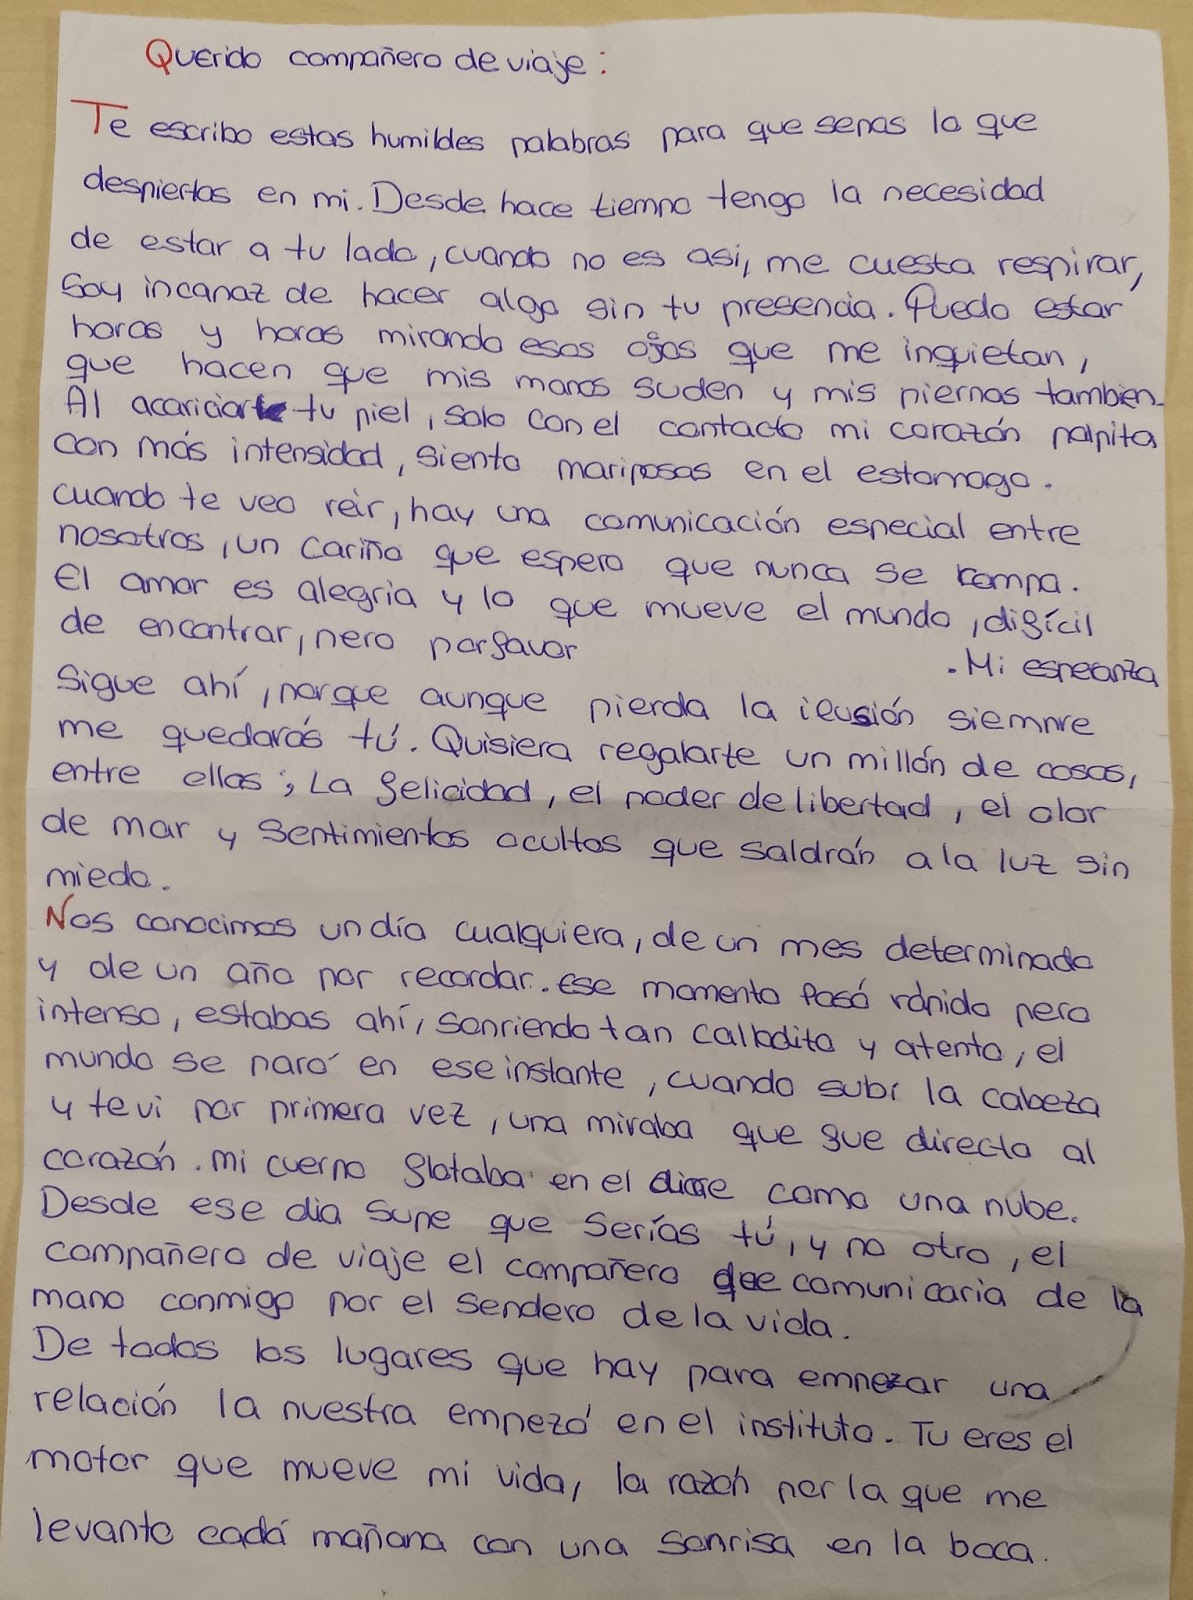 Querido compañero de viaje:
Te escribo estas humildes palabras para que sepas lo que
despiertas en mi. Desde hace tiempo tengo la necesidad
de estar a tu lado, cuando no es asi, me cuesta respirar,
Soy incapaz de hacer algo sin tu presencia. Puedo estar
horas y horas mirando esos ojos que me inquietan,
que hacen que mis manos suden y mis piernas tambien.
Al acariciar tu piel, solo con el contacto mi corazón palpita
con más intensidad, siento mariposas en el estomago.
cuando te veo reir, hay una comunicación especial entre
nosotros, un cariño que espero que nunca se rompa.
El amor es alegria y lo que mueve el mundo, difícil
de encontrar, pero porfavor
. Mi esperanza
Sigue ahí, porque aunque pierda la ilusión siempre
me quedarás tú. Quisiera regalarte un millón de cosas,
entre ellas; La felicidad, el poder de libertad, el olor
de mar y sentimientos ocultos que saldrán a la luz sin
miedo.
Nos conocimos un día cualquiera, de un mes determinado
y de un año por recordar. Ese momento Pasó rápido pero
intenso, estabas ahí, sonriendo tan calladito y atento, el
mundo se paró en ese instante, cuando subí la cabeza
y te vi por primera vez, una miraba que fue directo al
corazón. mi cuerpo flotaba en el aire como una nube.
Desde ese dia supe que Serías tú, y no otro, el
compañero de viaje el compañero que comunicaria de la
mano conmigo por el sendero de la vida.
De todos los lugares que hay para empezar una
relación la nuestra empezó en el instituto. Tu eres el
motor que mueve mi vida, la razón por la que me
levanto cadá mañana con una sonrisa en la boca.